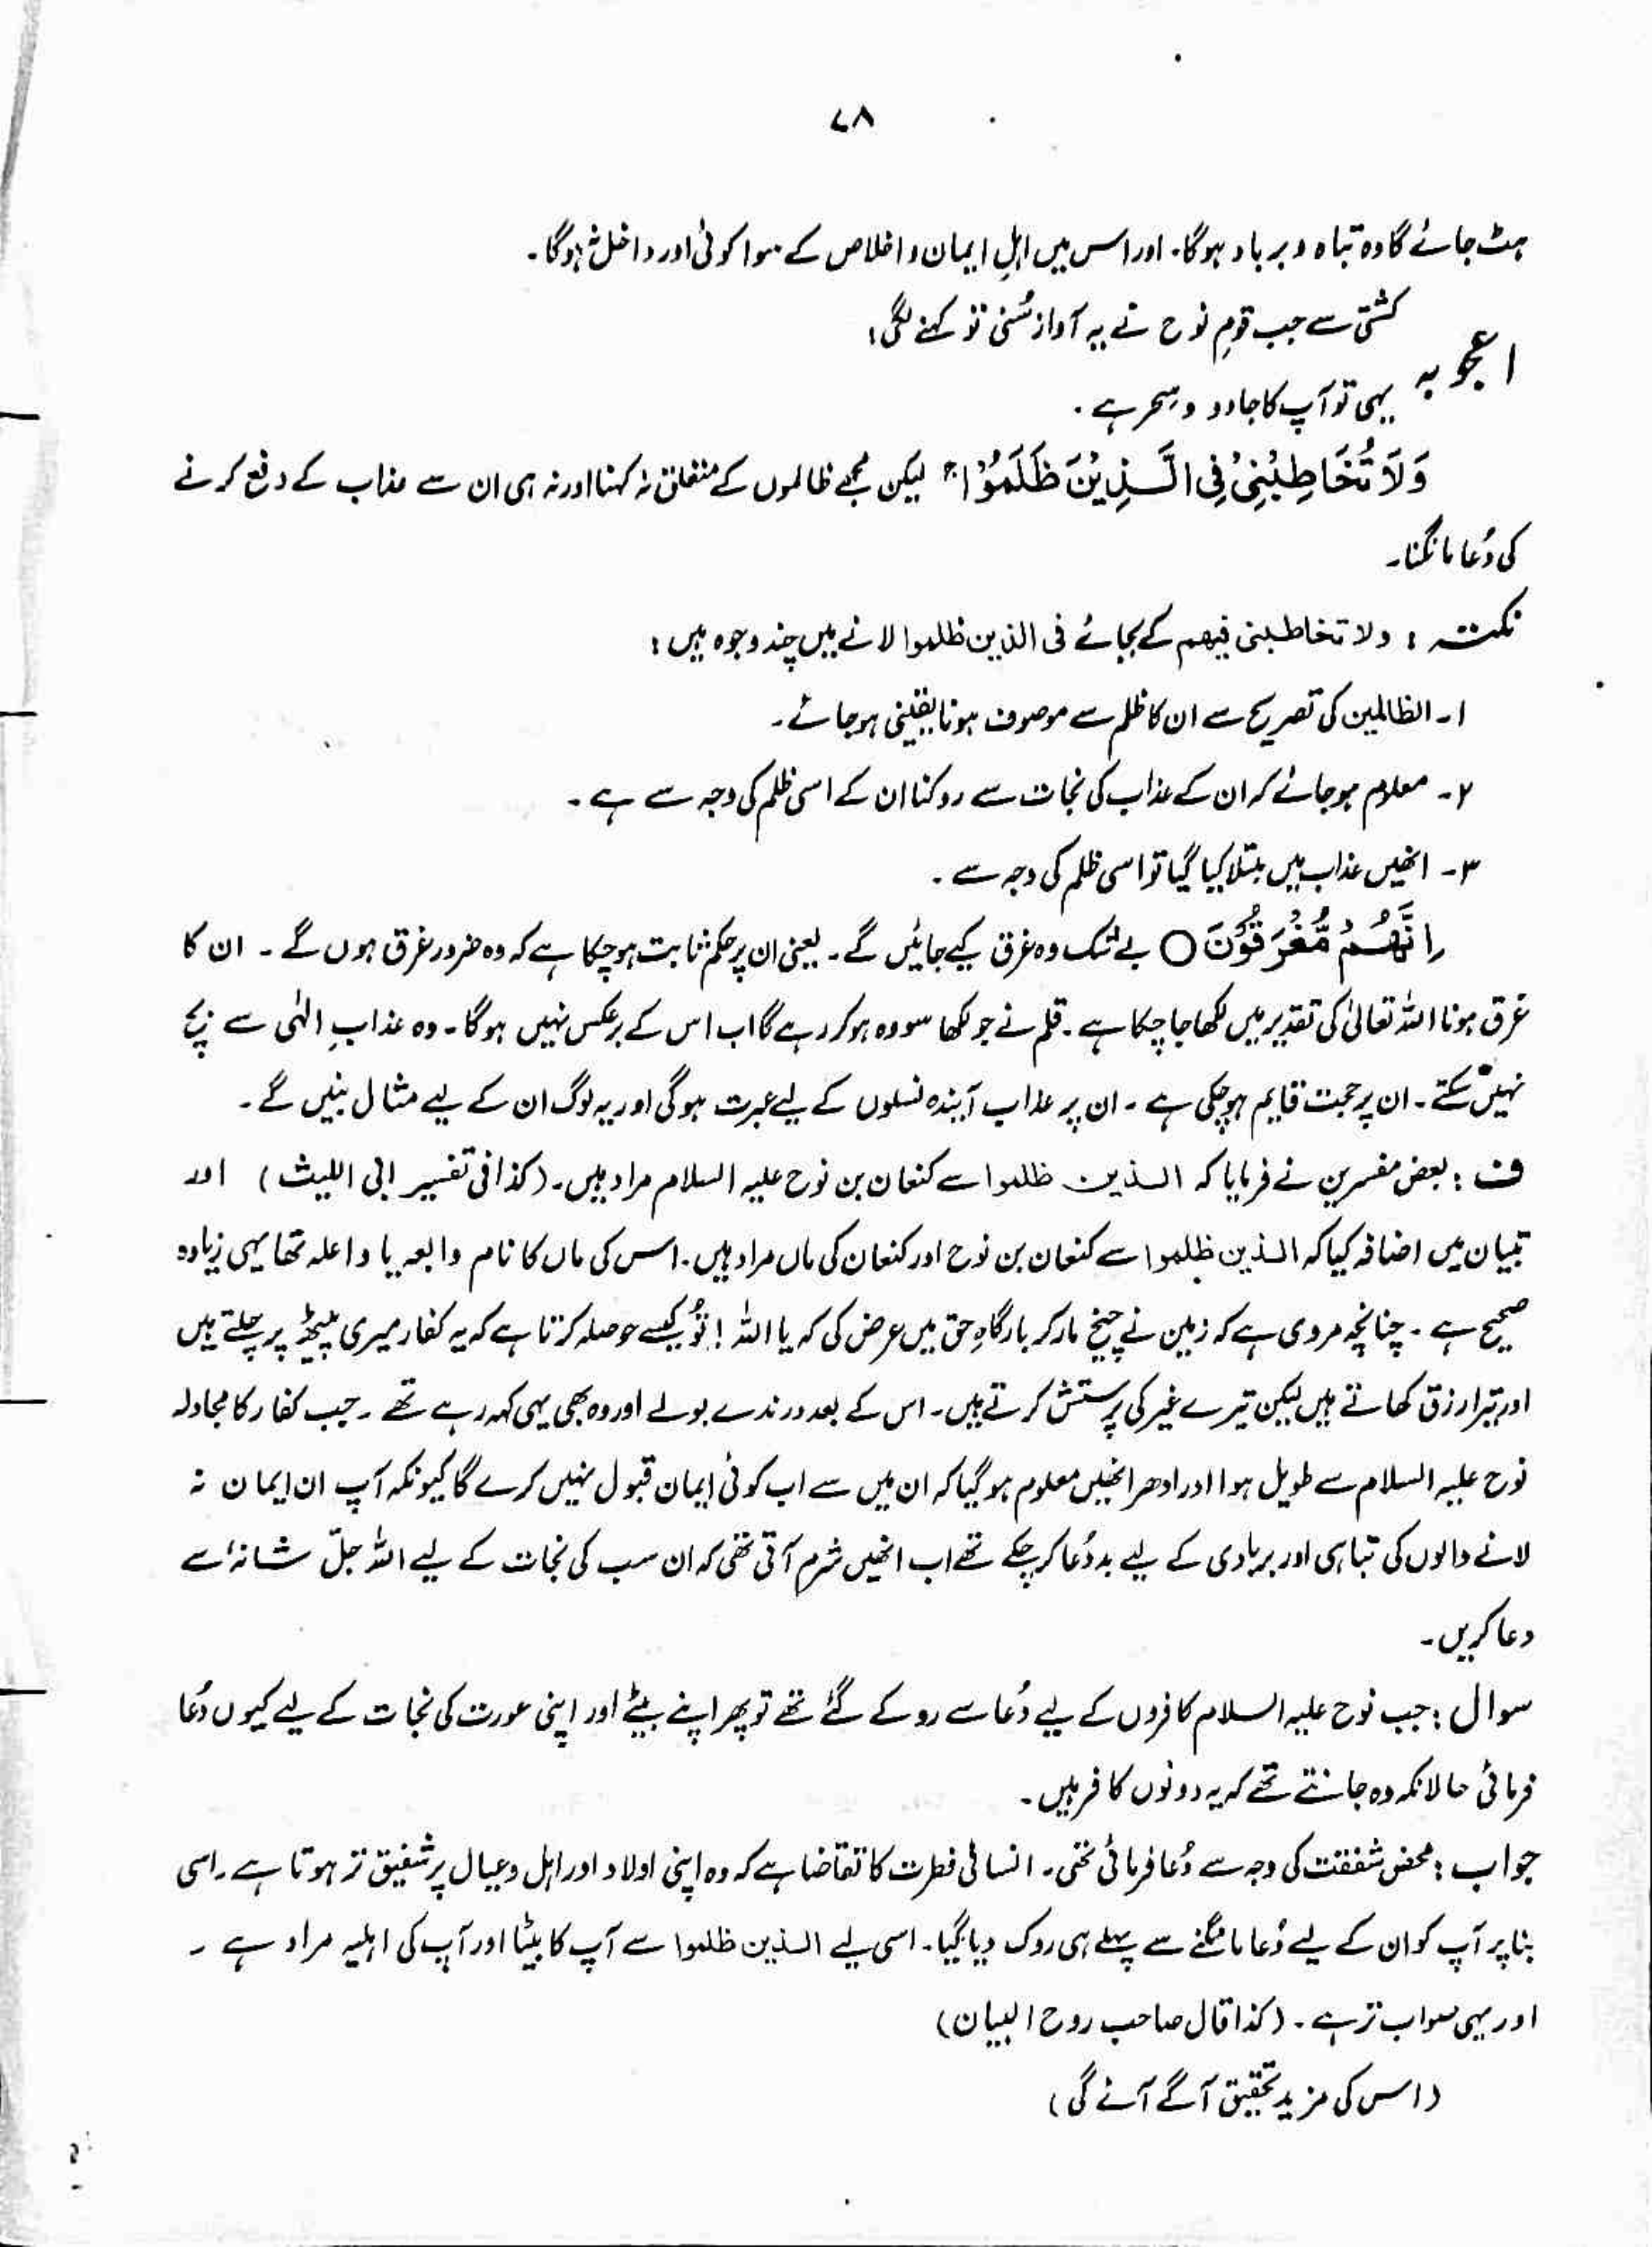 ۷۸
ہٹ جائے گا وہ تباہ و برباد ہوگا۔ اور اس میں اہلِ ایمان و اخلاص کے سوا کوئی اور داخل نہ ہوگا۔
کشتی سے جب قومِ نوح نے یہ آواز سُنی تو کہنے لگی:
اعجوبہ
یہی تو آپ کا جادو و سِحر ہے۔
وَلَا تُخَاطِبْنِیْ فِی الَّذِیْنَ ظَلَمُوْا ج لیکن مجھے ظالموں کے متعلق نہ کہنا اور نہ ہی ان سے عذاب کے دفع کرنے
کی دُعا مانگنا۔
نکتہ : ولا تخاطبنی فیھم کے بجائے فی الذین ظلموا لانے میں چند وجوہ ہیں :
۱۔ الظالمین کی تصریح سے ان کا ظلم سے موصوف ہونا یقینی ہوجائے۔
۲۔ معلوم ہوجائے کہ ان کے عذاب کی نجات سے روکنا ان کے اسی ظلم کی وجہ سے ہے۔
۳۔ انھیں عذاب میں مبتلا کیا گیا تو اسی ظلم کی وجہ سے۔
اِنَّھُمْ مُّغْرَقُوْنَ ○ بے شک وہ غرق کیے جائیں گے۔ یعنی ان پر حکم ثابت ہوچکا ہے کہ وہ ضرور غرق ہوں گے ۔ ان کا
غرق ہونا اللہ تعالیٰ کی تقدیر میں لکھا جا چکا ہے۔ قلم نے جو لکھا سو وہ ہو کر رہے گا اب اس کے برعکس نہیں ہوگا۔ وہ عذابِ الٰہی سے بچ
نہیں سکتے۔ ان پر حجت قایم ہوچکی ہے۔ ان پر عذاب آیندہ نسلوں کے لیے عبرت ہوگی اور یہ لوگ ان کے لیے مثال بنیں گے۔
ف : بعض مفسرین نے فرمایا کہ الذین ظلموا سے کنعان بن نوح علیہ السلام مراد ہیں۔ (کذا فی تفسیر ابی اللیث) اور
تبیان میں اضافہ کیا کہ الذین ظلموا سے کنعان بن نوح اور کنعان کی ماں مراد ہیں۔ اس کی ماں کا نام والعہ یا واعلہ تھا یہی زیادہ
صحیح ہے۔ چنانچہ مروی ہے کہ زمین نے چیخ مار کر بارگاہِ حق میں عرض کی کہ یا اللہ ! تُو کیسے حوصلہ کرتا ہے کہ یہ کفار میری پیٹھ پر چلتے ہیں
اور تیرا رزق کھاتے ہیں لیکن تیرے غیر کی پرستش کرتے ہیں۔ اس کے بعد درندے بولے اور وہ بھی یہی کہہ رہے تھے۔ جب کفار کا مجادلہ
نوح علیہ السلام سے طویل ہوا اور ادھر انھیں معلوم ہوگیا کہ ان میں سے اب کوئی ایمان قبول نہیں کرے گا کیونکہ آپ ان ایمان نہ
لانے والوں کی تباہی اور بربادی کے لیے بددُعا کرچکے تھے اب انھیں شرم آتی تھی کہ ان سب کی نجات کے لیے اللہ جلّ شانہٗ سے
دعا کریں۔
سوال : جب نوح علیہ السلام کافروں کے لیے دُعا سے روکے گئے تھے تو پھر اپنے بیٹے اور اپنی عورت کی نجات کے لیے کیوں دُعا
فرمائی حالانکہ وہ جانتے تھے کہ یہ دونوں کافر ہیں۔
جواب : محض شفقت کی وجہ سے دُعا فرمائی تھی۔ انسانی فطرت کا تقاضا ہے کہ وہ اپنی اولاد اور اہل وعیال پر شفیق تر ہوتا ہے۔ اسی
بنا پر آپ کو ان کے لیے دُعا مانگنے سے پہلے ہی روک دیا گیا۔ اسی لیے الذین ظلموا سے آپ کا بیٹا اور آپ کی اہلیہ مراد ہے ۔
اور یہی صواب تر ہے۔ (کذا قال صاحب روح البیان)
(اس کی مزید تحقیق آگے آئے گی)